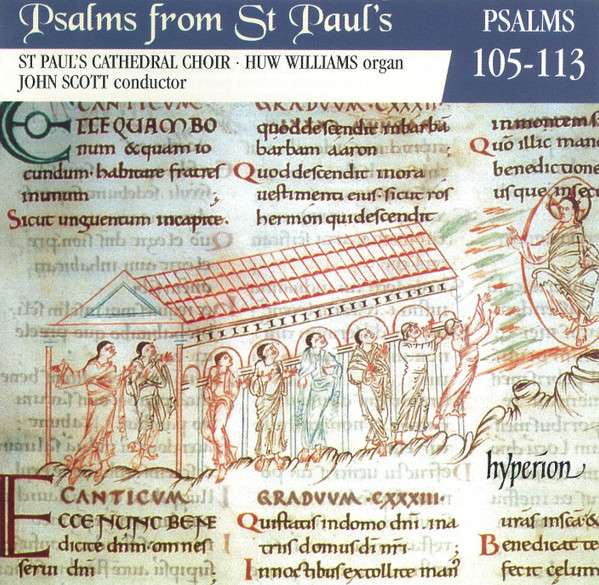 Psalms from St Paul's
ST PAUL'S CATHEDRAL CHOIR · HUW WILLIAMS organ
JOHN SCOTT conductor
PSALMS
105-113
CANTICUM GRADUUM·CXXXII
ECCE QUAM BO
num & quam io
cundum·habitare fratres
inunum
Sicut unguentum incapite·
quod descendit inbarbā
barbam aaron
Quod descendit inora
uestimenti eius·sicut ros
hermon qui descendit
inmontem s
Quō illic man
benedictione
usque insecl
hyperion
CANTICUM GRADUUM·CXXXIII·
ECCE NUNC BENE
dicite dnm·omnes
serui dni
Qui statis indomo dni·ina
triis domus di nri
Innoctibus extollite man'
uras insca &
Benedicat te
fecit celum